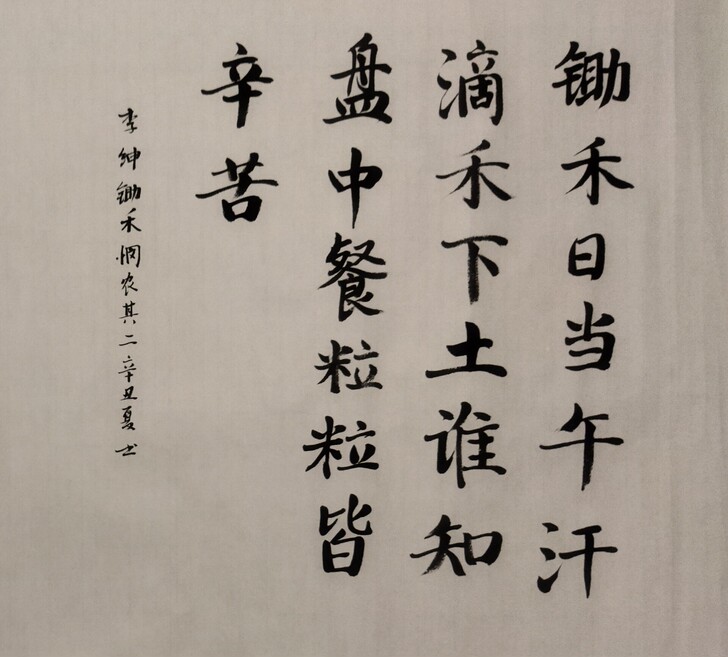 锄禾日当午汗
滴禾下土谁知
盘中餐粒粒皆
辛苦
李绅锄禾悯农其二辛丑夏书